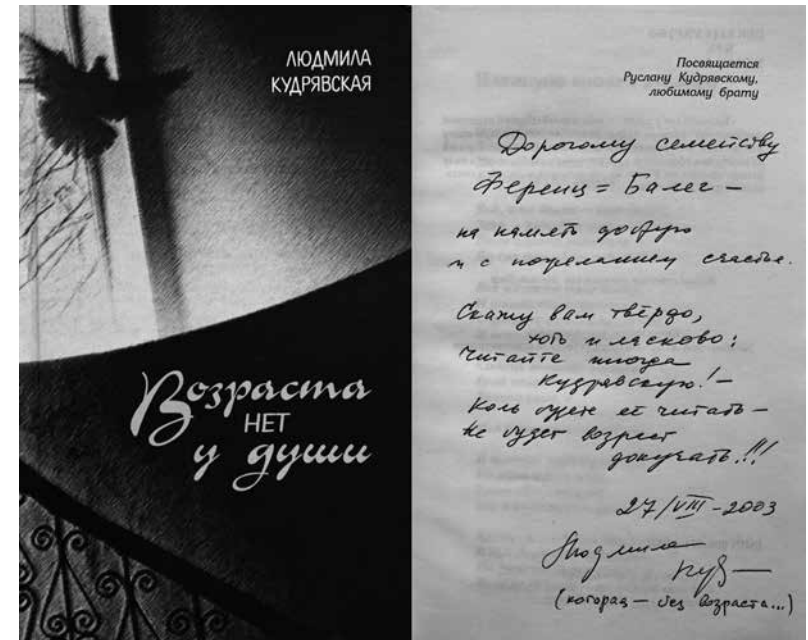 ЛЮДМИЛА
КУДРЯВСКАЯ
Возраста
НЕТ
у души
Посвящается
Руслану Кудрявскому,
любимому брату
Дорогому семейству
Ференц = Балег –
на память добрую
и с пожеланием счастья.
Скажу вам твёрдо,
хоть и ласково:
Читайте иногда
Кудрявскую! –
Коль будете её читать –
Не будет возраст
докучать!!!
27/VIII – 2003
Людмила
Куд
(которая – без возраста...)